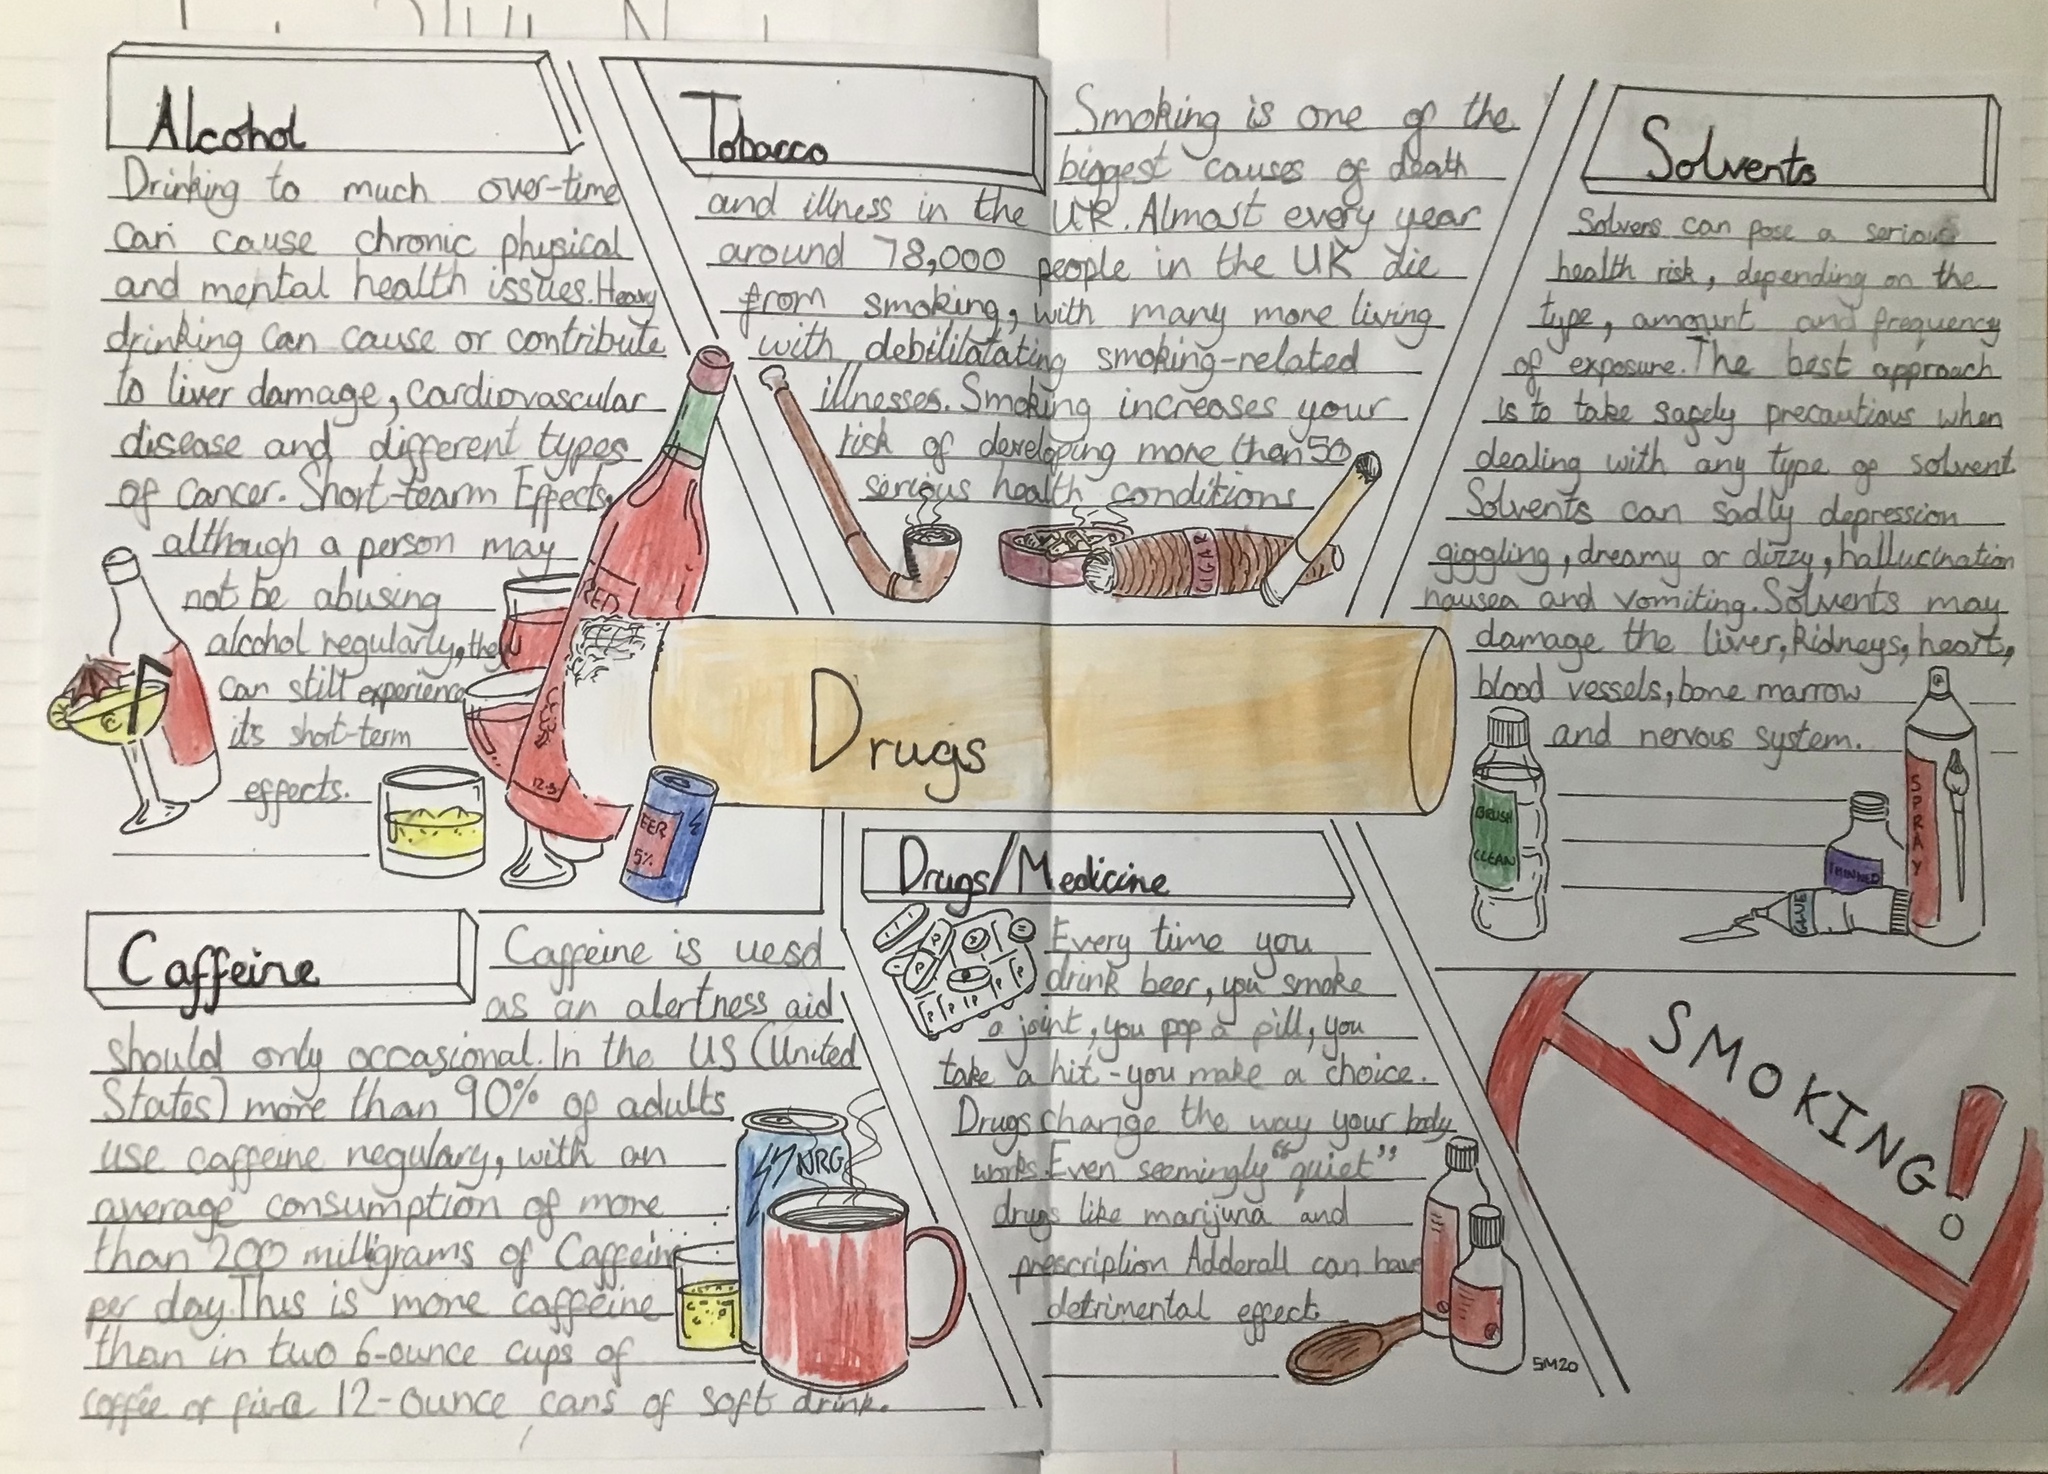 Alcohol
Drinking to much over-time
can cause chronic physical
and mental health issues. Heavy
drinking can cause or contribute
to liver damage, cardiovascular
disease and different types
of cancer. Short-tearm Effects,
although a person may
not be abusing
alcohol regularly, they
can still experience
its short-term
effects.
RED
12.5
BEER
5%
Tobacco
Smoking is one of the
biggest causes of death
and illness in the UK. Almost every year
around 78,000 people in the UK die
from smoking, with many more living
with debilitatating smoking-related
illnesses. Smoking increases your
risk of developing more then 50
serious health conditions
CIGAR
Solvents
Solvers can pose a serious
health risk, depending on the
type, amount and frequency
of exposure. The best approach
is to take safely precautious when
dealing with any type of solvent
Solvents can sadly depression
giggling, dreamy or dizzy, hallucination
nausea and vomiting. Solvents may
damage the liver, kidneys, heart,
blood vessels, bone marrow
and nervous system.
BRUSH
CLEAN
THINNED
GLUE
SPRAY
Drugs
Caffeine
Caffeine is uesd
as an alertness aid
should only occasional. In the US (United
States) more than 90% of adults
use caffeine regulary, with an
average consumption of more
than 200 milligrams of Caffeine
per day. This is more caffeine
than in two 6-ounce cups of
coffee or five 12-ounce cans of soft drink.
NRG
Drugs/Medicine
Every time you
drink beer, you smoke
a joint, you pop a pill, you
take a hit - you make a choice.
Drugs change the way your body
works. Even seemingly "quiet"
drugs like marijuna and
prescription Adderall can have
detrimental effect.
SM20
SMOKING!